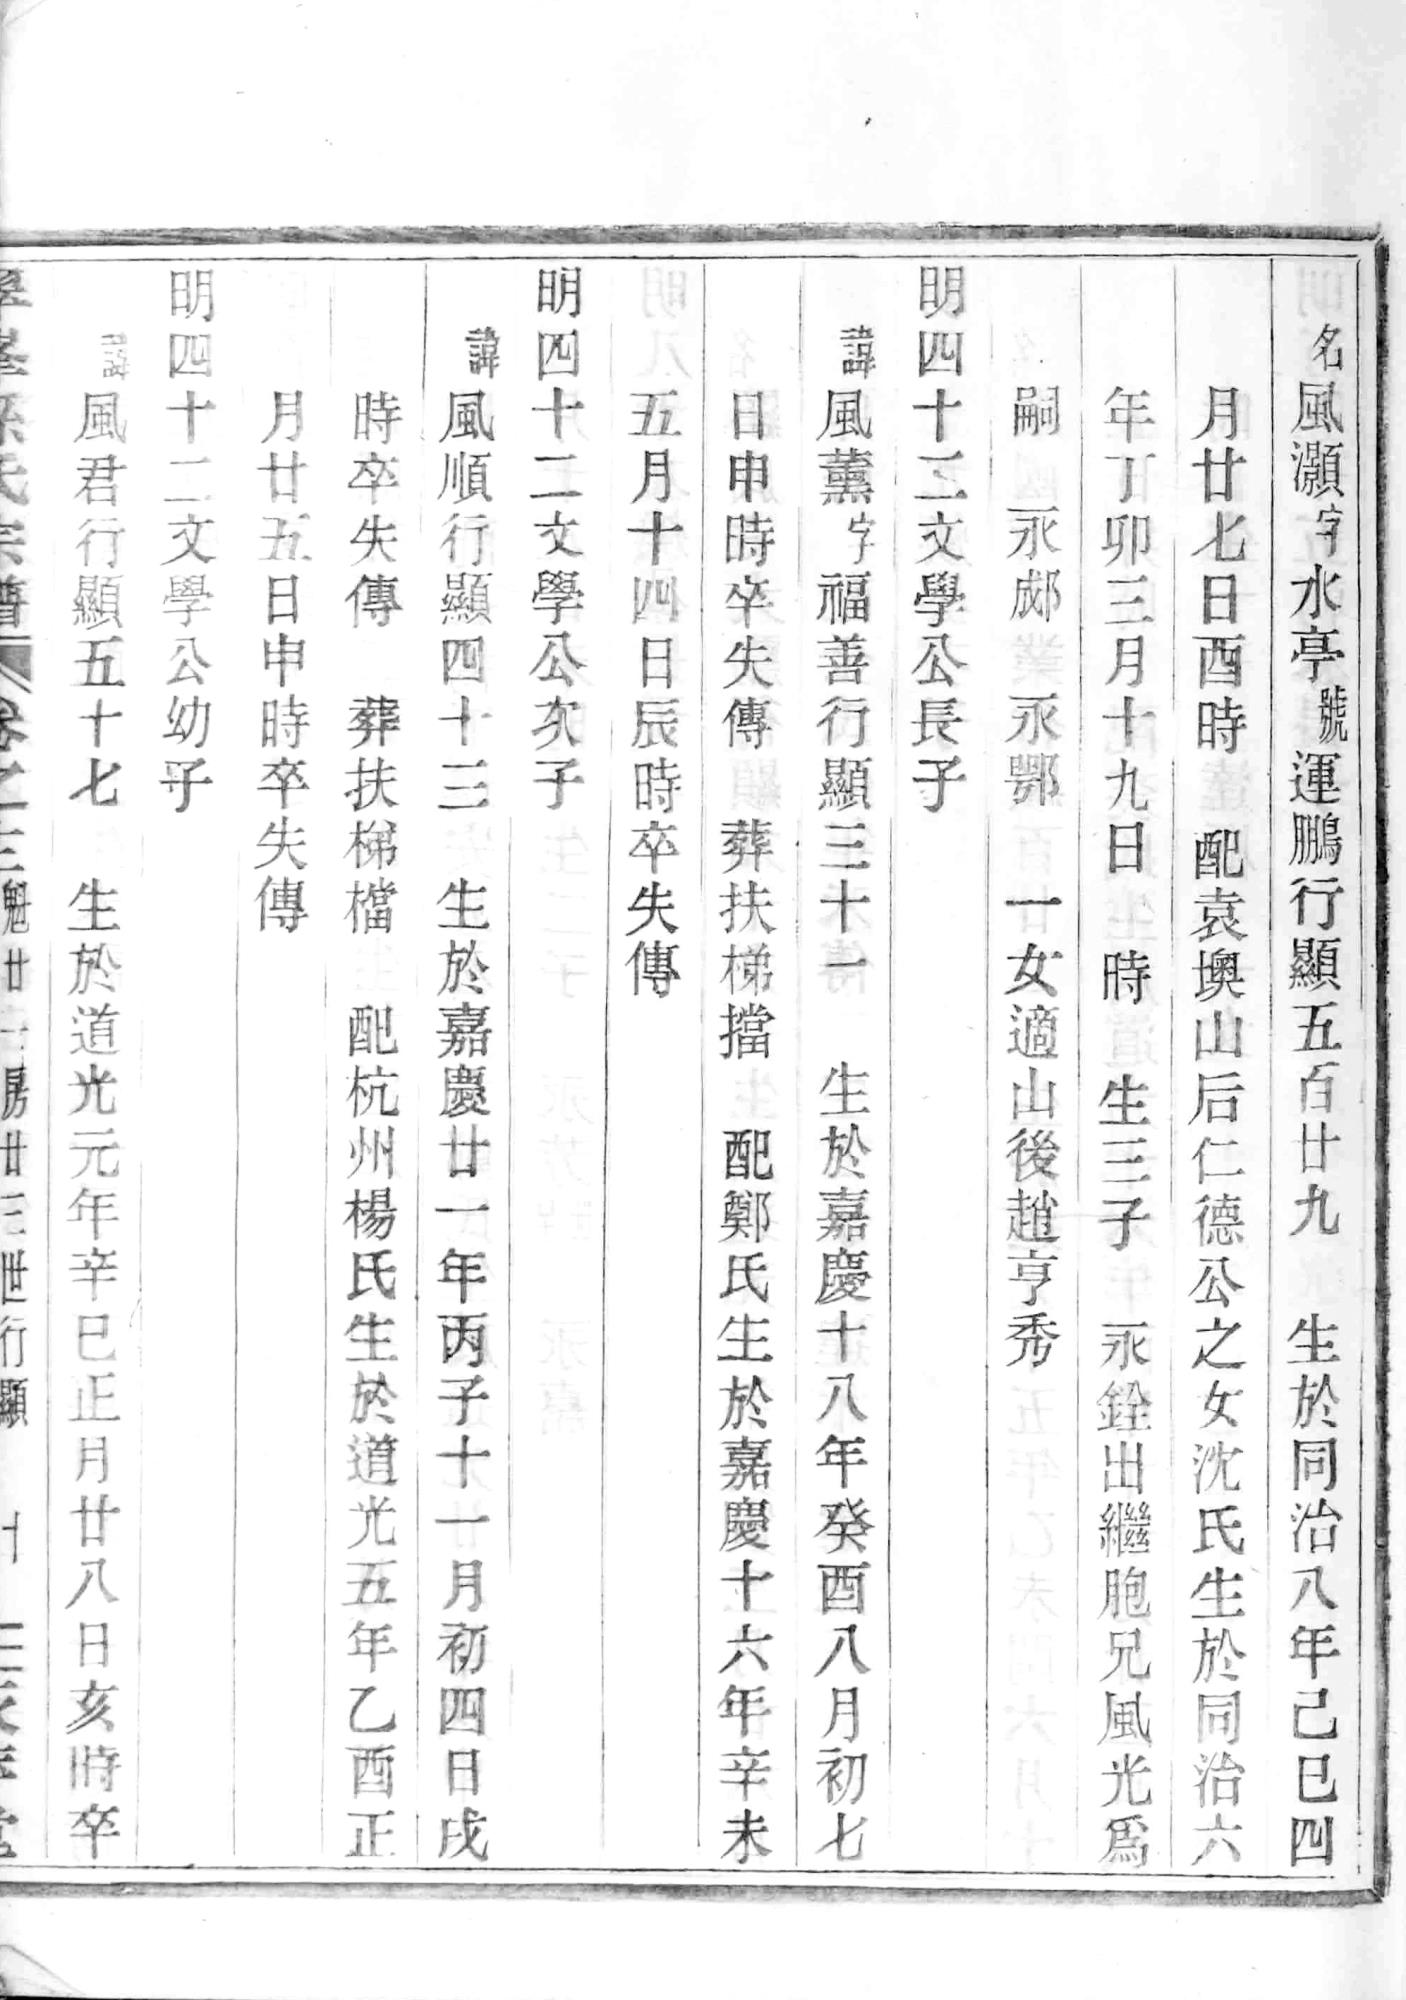 名風灝字水亭號運鵬行顯五百廿九　生於同治八年己巳四
月廿七日酉時　配袁墺山后仁德公之女沈氏生於同治六
年丁卯三月十九日　時　生三子　永銓出繼胞兄風光爲
嗣　永郕　永鄂　一女適山後趙亨秀
明四十二文學公長子
諱風薰字福善行顯三十一　生於嘉慶十八年癸酉八月初七
日申時卒失傳　葬扶梯擋　配鄭氏生於嘉慶十六年辛未
五月十四日辰時卒失傳
明四十二文學公次子
諱風順行顯四十三　生於嘉慶廿一年丙子十一月初四日戌
時卒失傳　葬扶梯檔　配杭州楊氏生於道光五年乙酉正
月廿五日申時卒失傳
明四十二文學公幼子
諱風君行顯五十七　生於道光元年辛巳正月廿八日亥時卒
氏宗譜　卷之三　魁廿　房廿三世行顯　堂